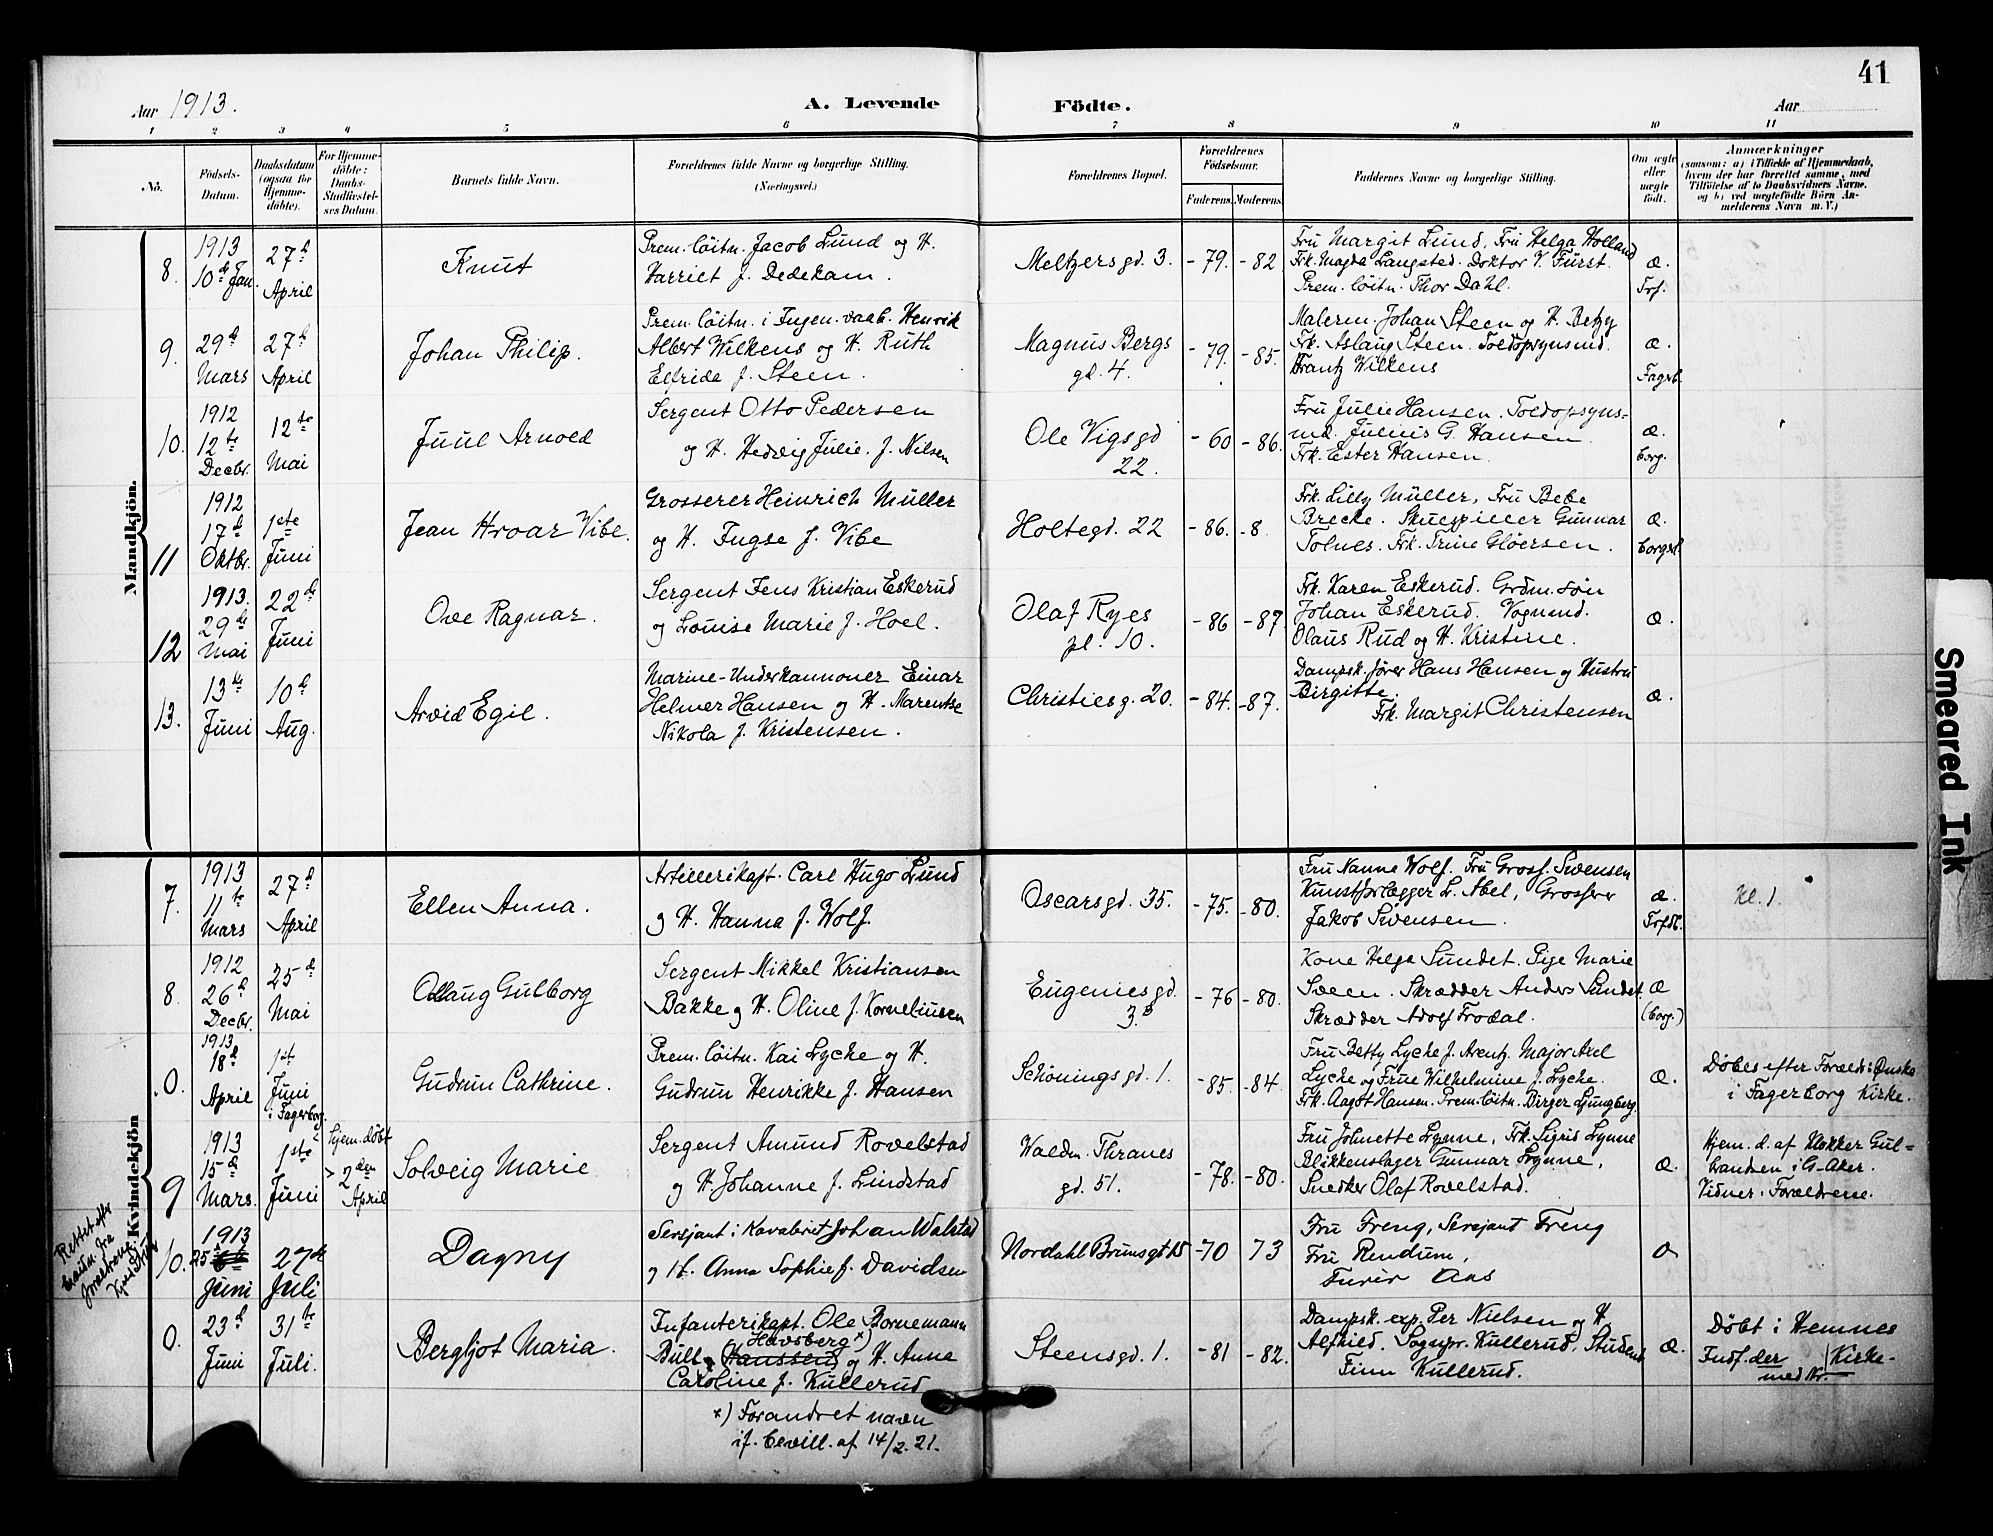 41
Aar 1913. A. Levende Födte. Aar
1 2 3 4 5 6 7 8 9 10 11
No.
Födsels-
Datum.
Daabsdatum
(ogsaa for
Hjemme-
döbte).
For Hjemme-
döbte:
Daabs-
Stadfæstel-
ses Datum.
Barnets fulde Navn.
Forældrenes fulde Navne og borgerlige Stilling.
(Næringsvei.)
Forældrenes Bopæl.
Forældrenes
Födselsaar.
Faderens. Moderens.
Faddernes Navne og borgerlige Stilling.
Om ægte
eller
uægte
födt.
Anmærkninger
(saasom: a) i Tilfælde af Hjemmedaab,
hvem der har forrettet samme, med
Tilföielse af to Daabsvidners Navne,
og b) ved uægtefödte Börn An-
melderens Navn m. V.)
Mandkjön.
8.
1913
10de Jan.
27d
April
Knut
Prem. löitn. Jacob Lund og H.
Harriet f. Dedekam.
Meltzersgd. 3.
-79. -82
Fru Margit Lund, Fru Helga Holland
Frk. Magda Langsted. Doktor V. Fürst.
Prem. löitn. Thor Dahl.
æ.
Frf.
9.
29d
Mars
27d
April
Johan Philip.
Prem. löitn. i Ingen. vaab. Henrik
Albert Wilkens og H. Ruth
Elfride f. Steen.
Magnus Bergs
gd. 4.
-79. -85.
Malerm. Johan Steen og H. Betzy
Frk. Aslaug Steen. Toldopsynsmd.
Frantz Wilkens
æ.
Fagerb.
10.
1912
12te
Decbr.
12te
Mai
Juul Arnold
Sergent Otto Pedersen
og H. Hedvig Julie f. Nilsen
Ole Vigsgd
22.
-60 -86.
Fru Julie Hansen. Toldopsyns-
md. Julius G. Hansen.
Frk. Ester Hansen.
æ.
borg.
11
1912
17d
Oktbr.
1ste
Juni
Jean Hroar Vibe.
Grosserer Heinrich Müller
og H. Ingse f. Vibe
Holtegd. 22
-86. -8.
Frk. Lilly Müller, Fru Bebe
Brecke. Skuespiller Gunnar
Tolnes. Frk. Trine Gløersen.
æ.
borgerl.
12
1913.
29de
Mai
22de
Juni
Ove Ragnar.
Sergent Jens Kristian Eskerud
og Louise Marie f. Hoel.
Olaf Ryes
pl. 10.
-86 -87
Frk. Karen Eskerud. Grdm. søn
Johan Eskerud. Vognmd.
Olaus Rud og H. Kristine.
æ.
13.
13de
Juni
10d
Aug.
Arvid Egil.
Marine-Underkannoner Einar
Helmer Hansen og H. Marentse
Nikola f. Kristensen.
Christiesg. 20.
-84. -87.
Dampsk. fører Hans Hansen og Hustru
Birgitte.
Frk. Margit Christensen
æ.
Kvindekjön
7.
1913
11te
Mars
27d
April
Ellen Anna.
Artillerikapt. Carl Hugo Lund
og H. Hanna f. Wolf.
Oscarsgd. 35.
-75. -80.
Fru Nanna Wolf. Fru Gross. Svensen
Kunstforlægger L. Abel, Grosserer
Jakob Svensen.
æ.
Frfdb.
Kl. 1.
8.
1912
26d
Decbr.
25d
Mai
Oddaug Gulborg
Sergent Mikkel Kristiansen
Bakke og H. Oline f. Korneliusen
Eugeniesgd.
3.B
-76 -80.
Kone Helga Sundet. Pige Marie
Sveen. Skrædder Anders Sundet.
Skrædder Adolf Frodal.
æ
(borg.)
0.
1913.
18d
April
1st
Juni
i Fagerborg
Gudrun Cathrine.
Prem. löitn. Kai Lycke og H.
Gudrun Henrikke f. Hansen
Schöningsgd. 1.
-85. -84.
Fru Betty Lycke f. Arentz. Major Axel
Lycke og Frue Wilhelmine f. Lycke.
Frk. Aagot Hansen. Prem. löitn. Birger Ljungberg.
æ.
Döbes efter Foreldr: Ønske
i Fagerborg Kirke.
9
1913
15d
Mars.
1ste
Juni
hjem. döbt
2den
April
Solveig Marie
Sergent Amund Rovelstad
og H Johanne f. Lindstad
Waldm. Thranes
gd. 51.
-78. -80.
Fru Johnette Lynne, Frk. Sigris Lynne
Blikkenslager Gunnar Lynne,
Snedker Olaf Rovelstad.
æ.
Hjem. d. af Klokker Gul-
brandsen i G-Aker.
Vidner: Forældrene.
Rettet efter
10.
1913
25
Juni
27de
Juli
Dagny
Sersjant i Kavaleriet Johan Walstad
og H. Anna Sophie f. Davidsen
Nordahl Brunsgt 15
-70 73
Fru Freng, Sersjant Freng
Fru Rendum,
Furér Aas
0.
23d
Juni
31te
Juli.
Bergljot Maria.
Infanterikapt. Ole Bornemann
Havsberg x)
Bull (Hanssen) og H. Anna
Caroline f. Kullerud
x) Forandret navn
if. bevill. af 14/2. 21.
Steensgd. 1.
-81 -82.
Dampsk. exp. Per Nielsen og H.
Alfhild. Sognpr. Kullerud, Student
Finn Kullerud.
æ.
Döbt i Hemnes
Indf. der Kirke-
med Nr.
Smeared Ink